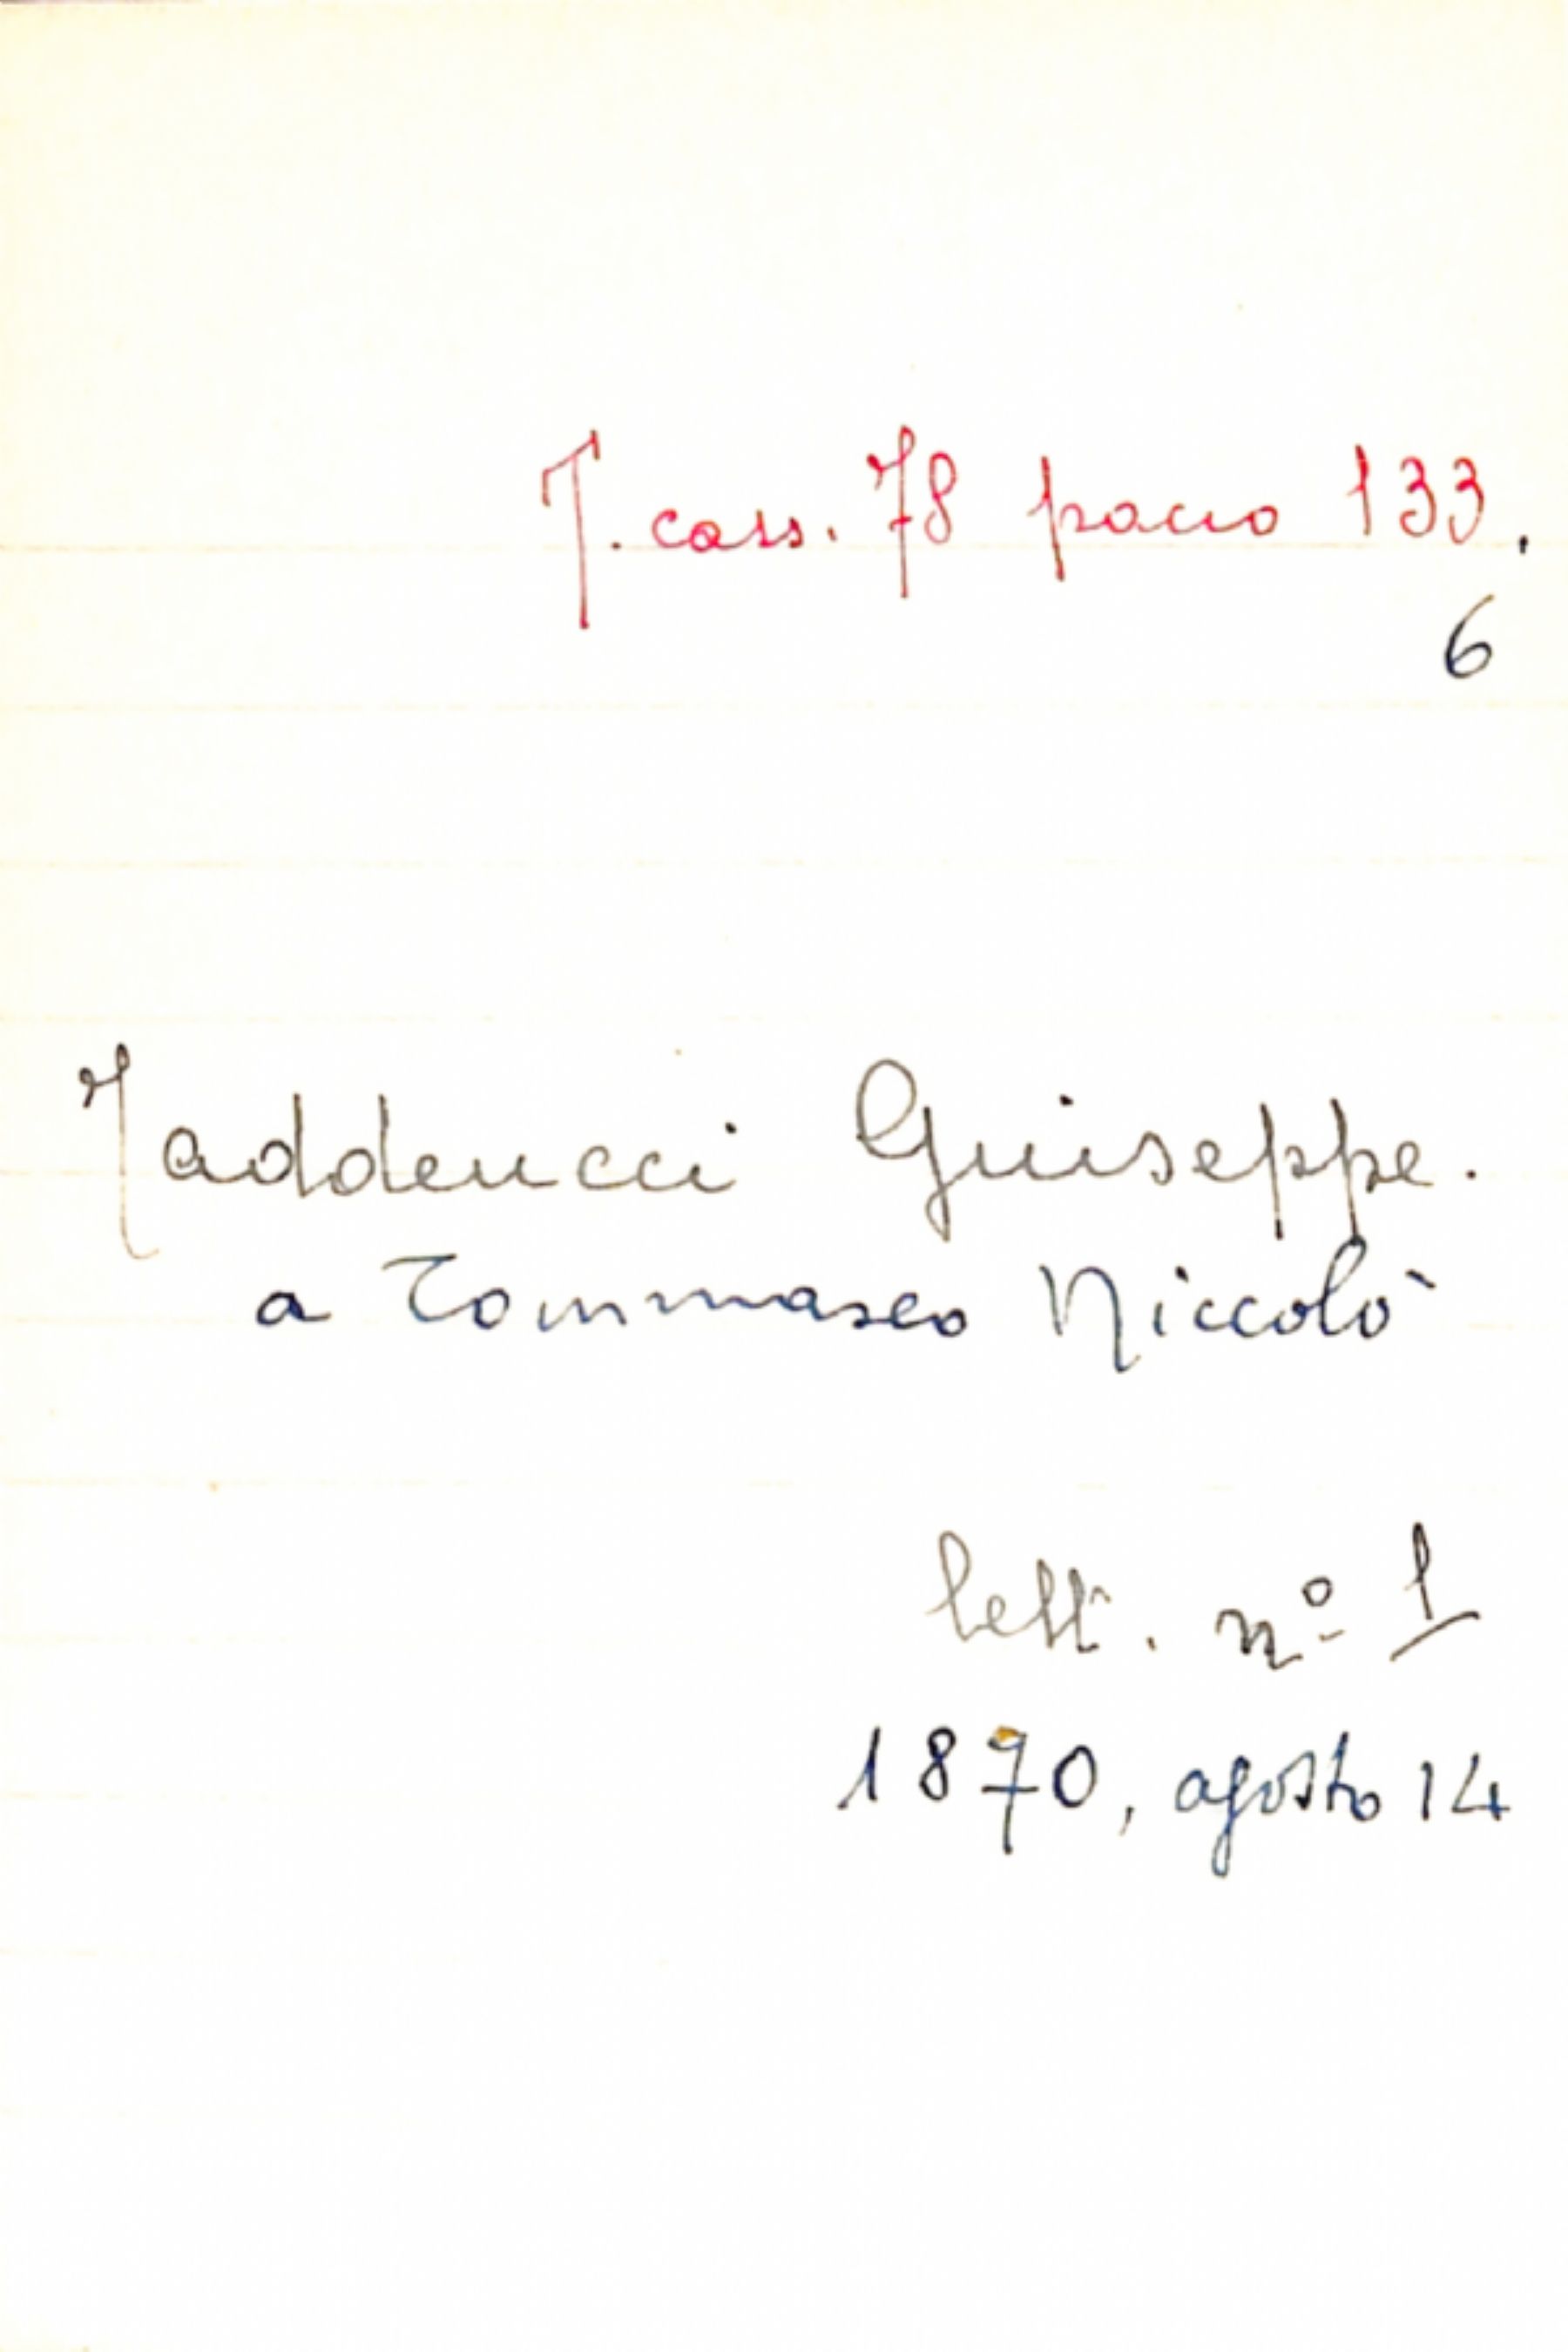 T. cass. 78 pacco 133.
6
Taddeucci Giuseppe.
a Tommaseo Niccolò
lett. nº 1
1870, agosto 14